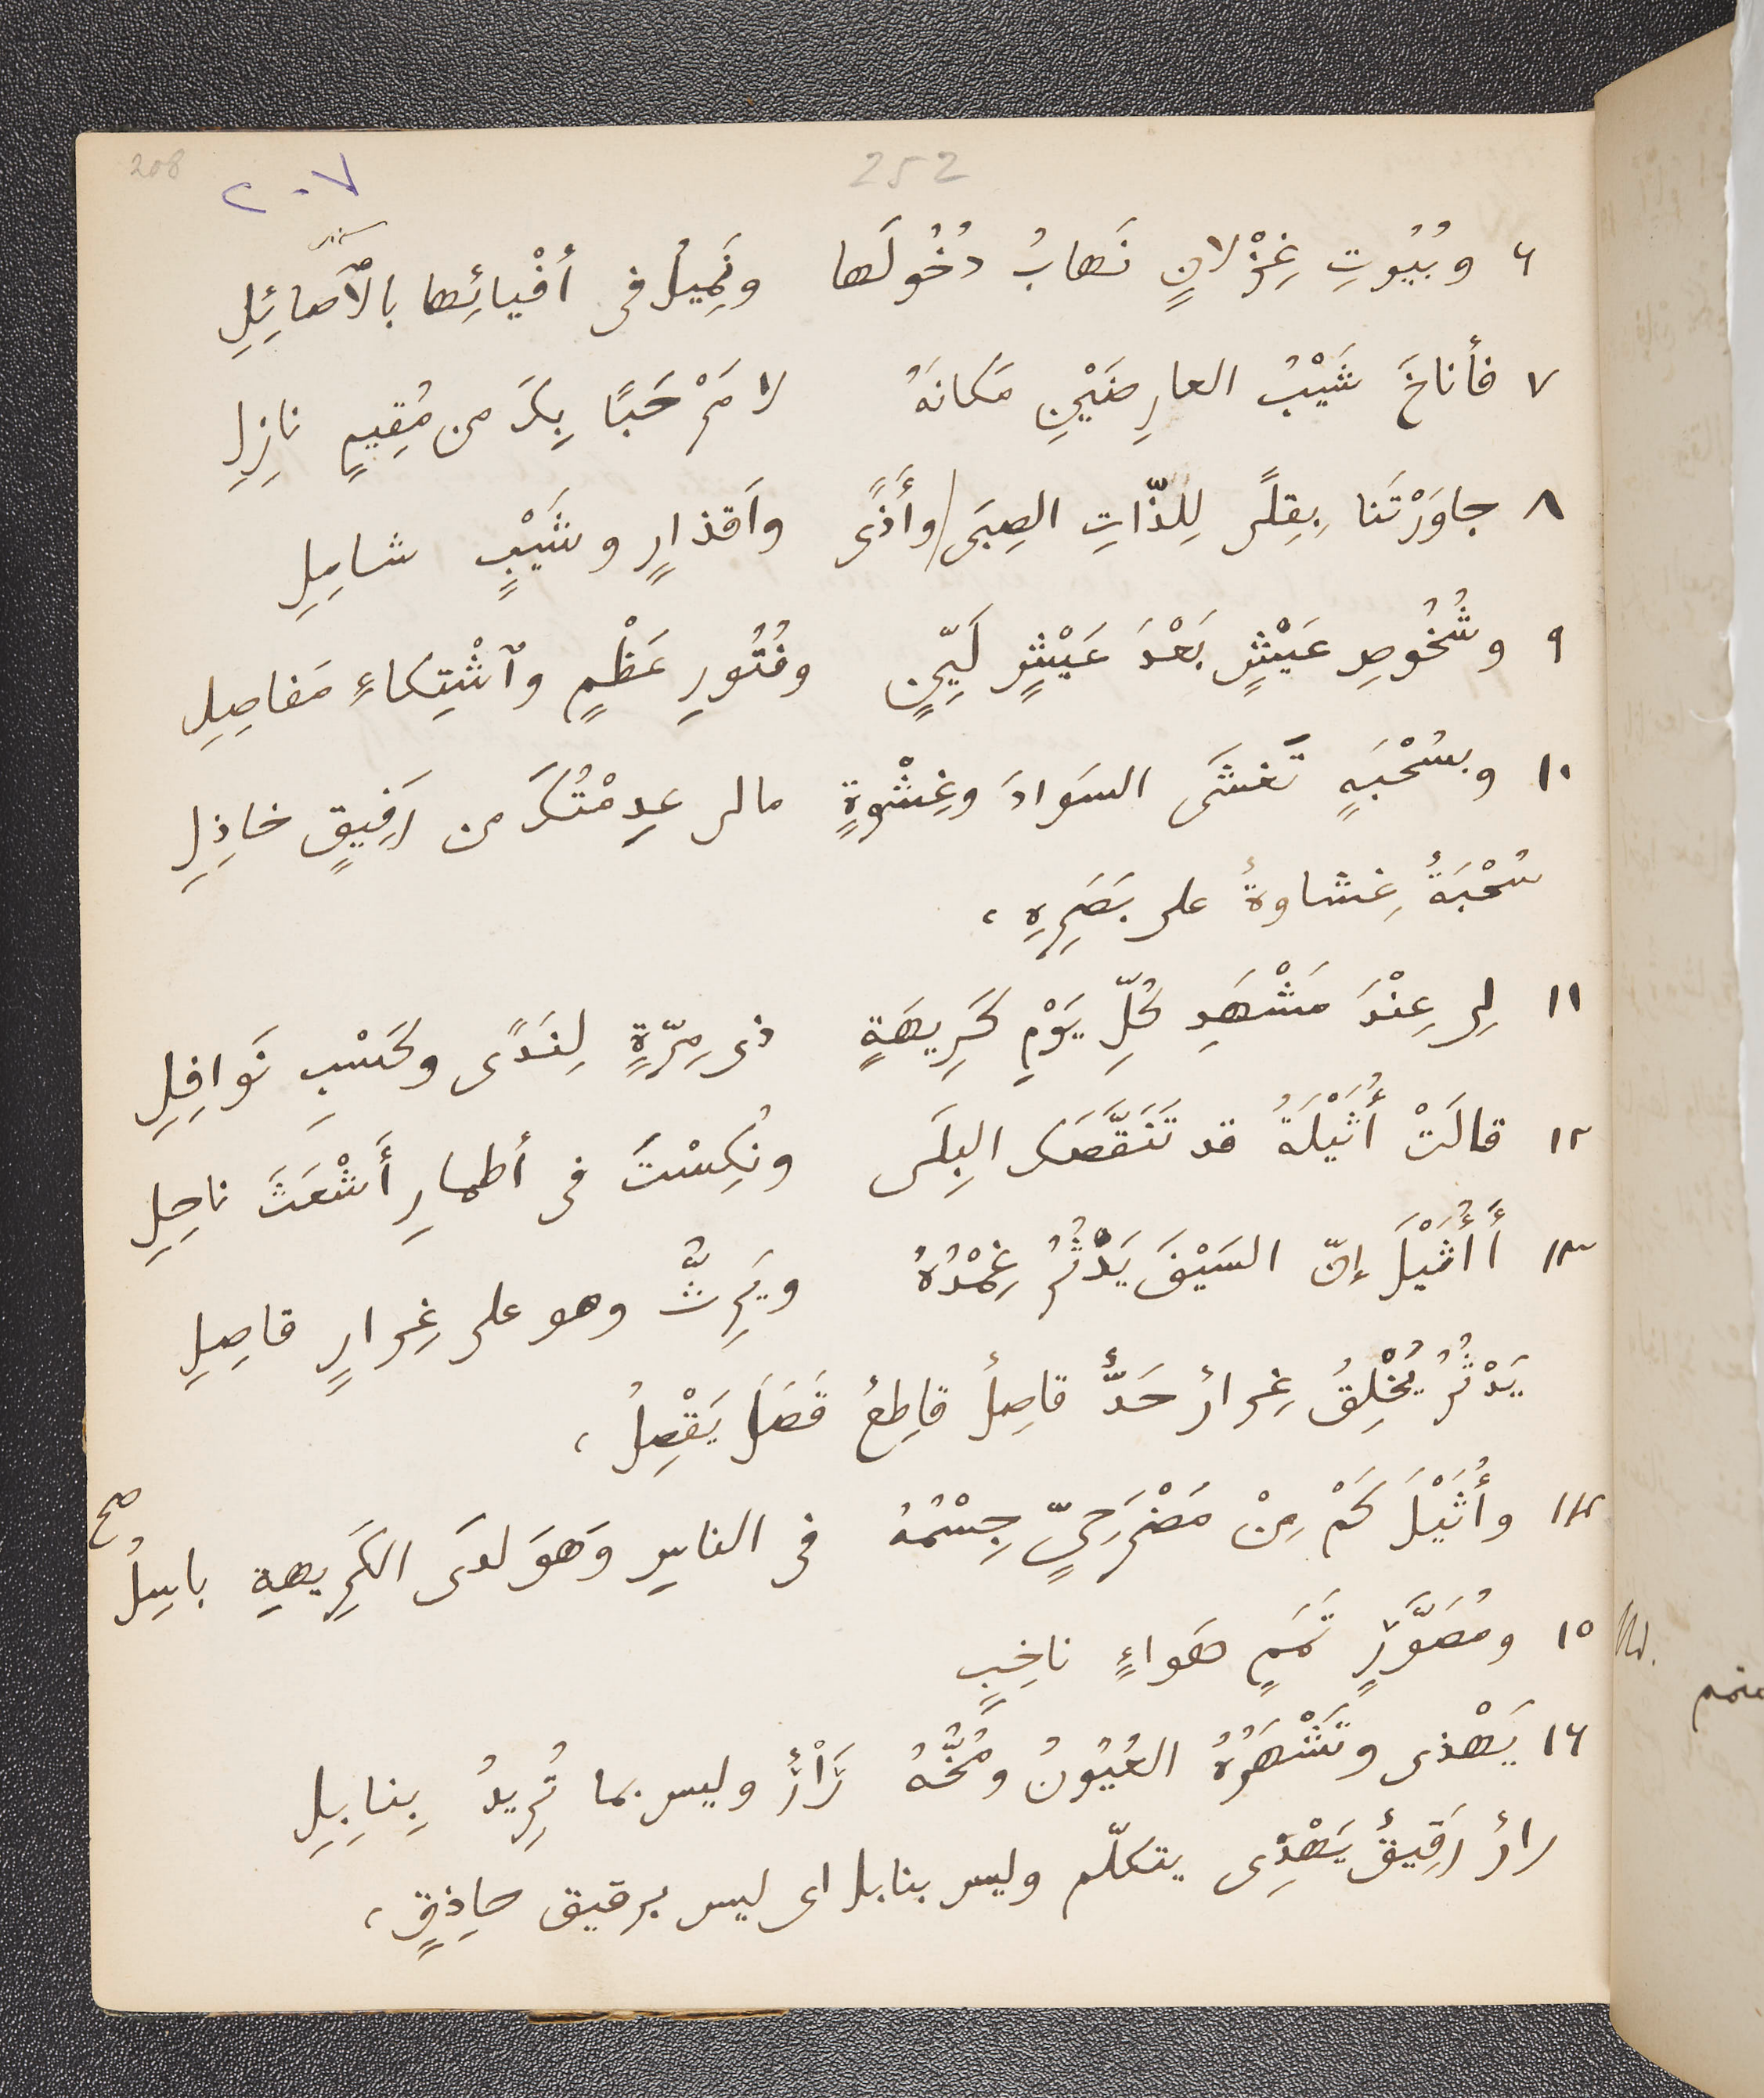 208
٢٠٧
252
٦ وبُيُوتِ غِزْلانٍ نَهابُ دُخُولَها ونَمِيلُ فى أفْيائِها بالآصائِلِ
٧ فأناخَ شَيْبُ العارِضَيْنِ مَكانَهُ لا مَرْحَبًا بِكَ من مُقِيمٍ نازِلِ
٨ جاوَرْتَنا بِقِلًى لِلذّاتِ الصِبَى / وأَذًى وأقذارٍ وشَيْبٍ شامِلِ
٩ وشُخُوصِ عَيْشٍ بَعْدَ عَيْشٍ لَيِّنٍ وفُتُورِ عَظْمٍ وٱشْتِكاءِ مَفاصِلِ
١٠ وبسُحْبَةٍ تَغشَى السَوادَ وغِشْوةٍ مالى عدِمْتُكَ من رَفِيقٍ خاذِلِ
سُحْبَةٌ غِشاوةٌ على بَصَرِهِ،
١١ لِى عِنْدَ مَشْهَدِ كُلِّ يَوْمٍ كَرِيهَةٍ ذى مِرّةٍ لِنَدًى وكَسْبِ نَوافِلِ
١٢ قالَتْ أُثَيْلَةُ قد تَنَقَّصَكَ البِلَى ونُكِسْتَ فى أطمارِ أَشْعَثَ ناحِلِ
١٣ أَأُثَيْلَ إنّ السَيْفَ يَدْثُرُ غِمْدُهُ ويَرِثُّ وهو على غِرارٍ قاصِلِ
يَدْثُرُ يُخْلِقُ غِرارٌ حَدٌّ قاصِلٌ قاطِعٌ قَصَلَ يَقْصِلُ،
١٤ وأُثَيْلَ كَمْ مِنْ مَضْرَحِىٍّ جِسْمُهُ فى الناسِ وَهوَ لدَى الكَرِيهةِ باسِلُ صح
١٥ ومُصَوَّرٍ تَمَمٍ هَواءٍ ناخِبٍ
١٦ يَهْذى وتَشْهَرُهُ العُيُونُ ومُخُّهُ رَأْرٌ وليس بما تُرِيدُ بِنابِلِ
رارٌ رَقِيقٌ يَهْذِى يتكلّم وليس بنابل اى ليس برقيق حاِذقٍ،